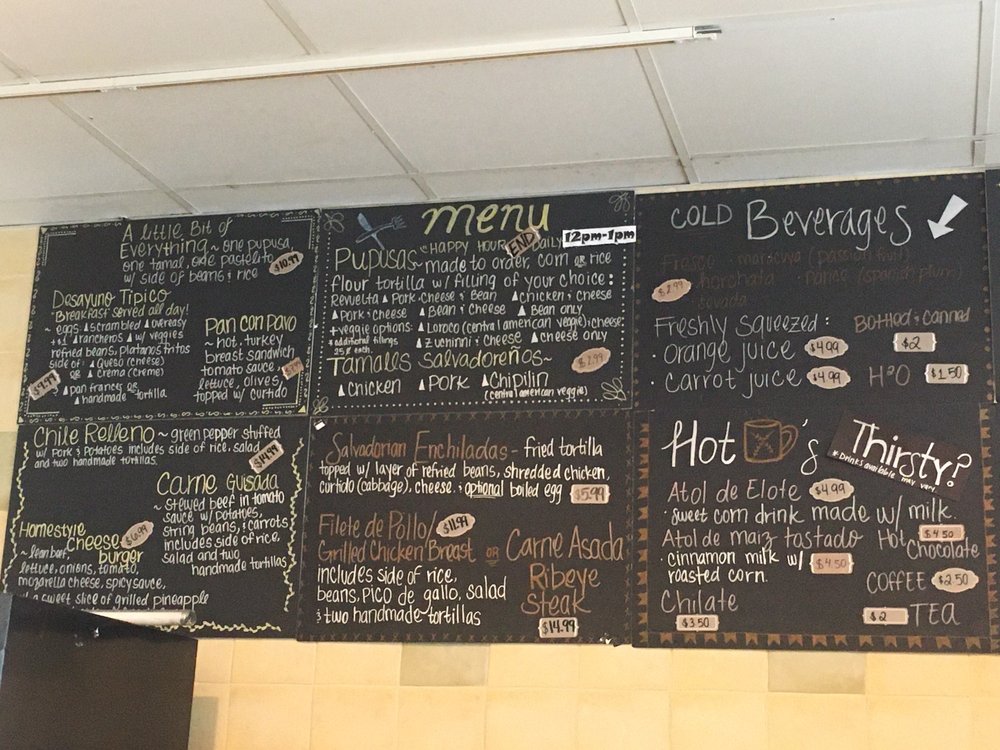 A little Bit of
Everything ~ one pupusa,
one tamal, one pastelito
w/ side of beans & rice
$10.99
Desayuno Tipico
Breakfast served all day!
~ eggs: ▲scrambled ▲overeasy
+$1 ▲rancheros ▲w/ veggies
refried beans, platanos fritos
side of: ▲ Queso (cheese)
OR ▲ crema (creme)
▲ pan frances OR
▲ handmade tortilla
$9.99
Pan con Pavo
~ hot, turkey
breast sandwich
tomato sauce,
lettuce, olives,
topped w/ curtido
menu
~ HAPPY HOUR
END
DAILY
12pm-1pm
Pupusas ~ made to order, corn OR rice
flour tortilla w/ filling of your choice:
Revuelta ▲ Pork-Cheese & Bean ▲ chicken & cheese
▲ Pork & cheese ▲ Bean & cheese ▲ Bean only
+veggie options: ▲ Loroco (central american veggie) & cheese
* additional fillings
25¢ each
▲ zuchinni & cheese ▲ cheese only
Tamales Salvadoreños ~
$2.99
▲ chicken ▲ Pork ▲ Chipilin
(central american veggie)
COLD Beverages
Fresco maracuya (passion fruit)
$2.99
horchata
Freshly squeezed:
· orange juice $4.99
· carrot juice $4.99
Bottled & canned
$2
H²O $1.50
Chile Relleno ~ green pepper stuffed
w/ Pork & Potatoes includes side of rice, salad
and two handmade tortillas.
$14.99
Carne Guisada
~ stewed beef in tomato
sauce w/ potatoes,
string beans, & carrots
includes side of rice,
salad and two
handmade tortillas
Homestyle
Cheese
burger
$6.99
~ lean beef,
lettuce, onions, tomato,
mozarella cheese, spicy sauce,
a sweet slice of grilled pineapple
Salvadorian Enchiladas ~ fried tortilla
topped w/ layer of refried beans, shredded chicken,
curtido (cabbage), cheese. & optional boiled egg $5.99
Filete de Pollo/ $11.99
Grilled Chicken Breast OR Carne Asada
Ribeye
Steak
$14.99
includes side of rice,
beans, pico de gallo, salad
& two handmade tortillas
Hot 's
Thirsty?
* Drinks available may vary
Atol de Elote $4.99
· sweet corn drink made w/ milk.
Atol de maiz tostado
· cinnamon milk w/ $4.50
roasted corn.
Chilate
$3.50
Hot $4.50
Chocolate
COFFEE $2.50
$2 TEA